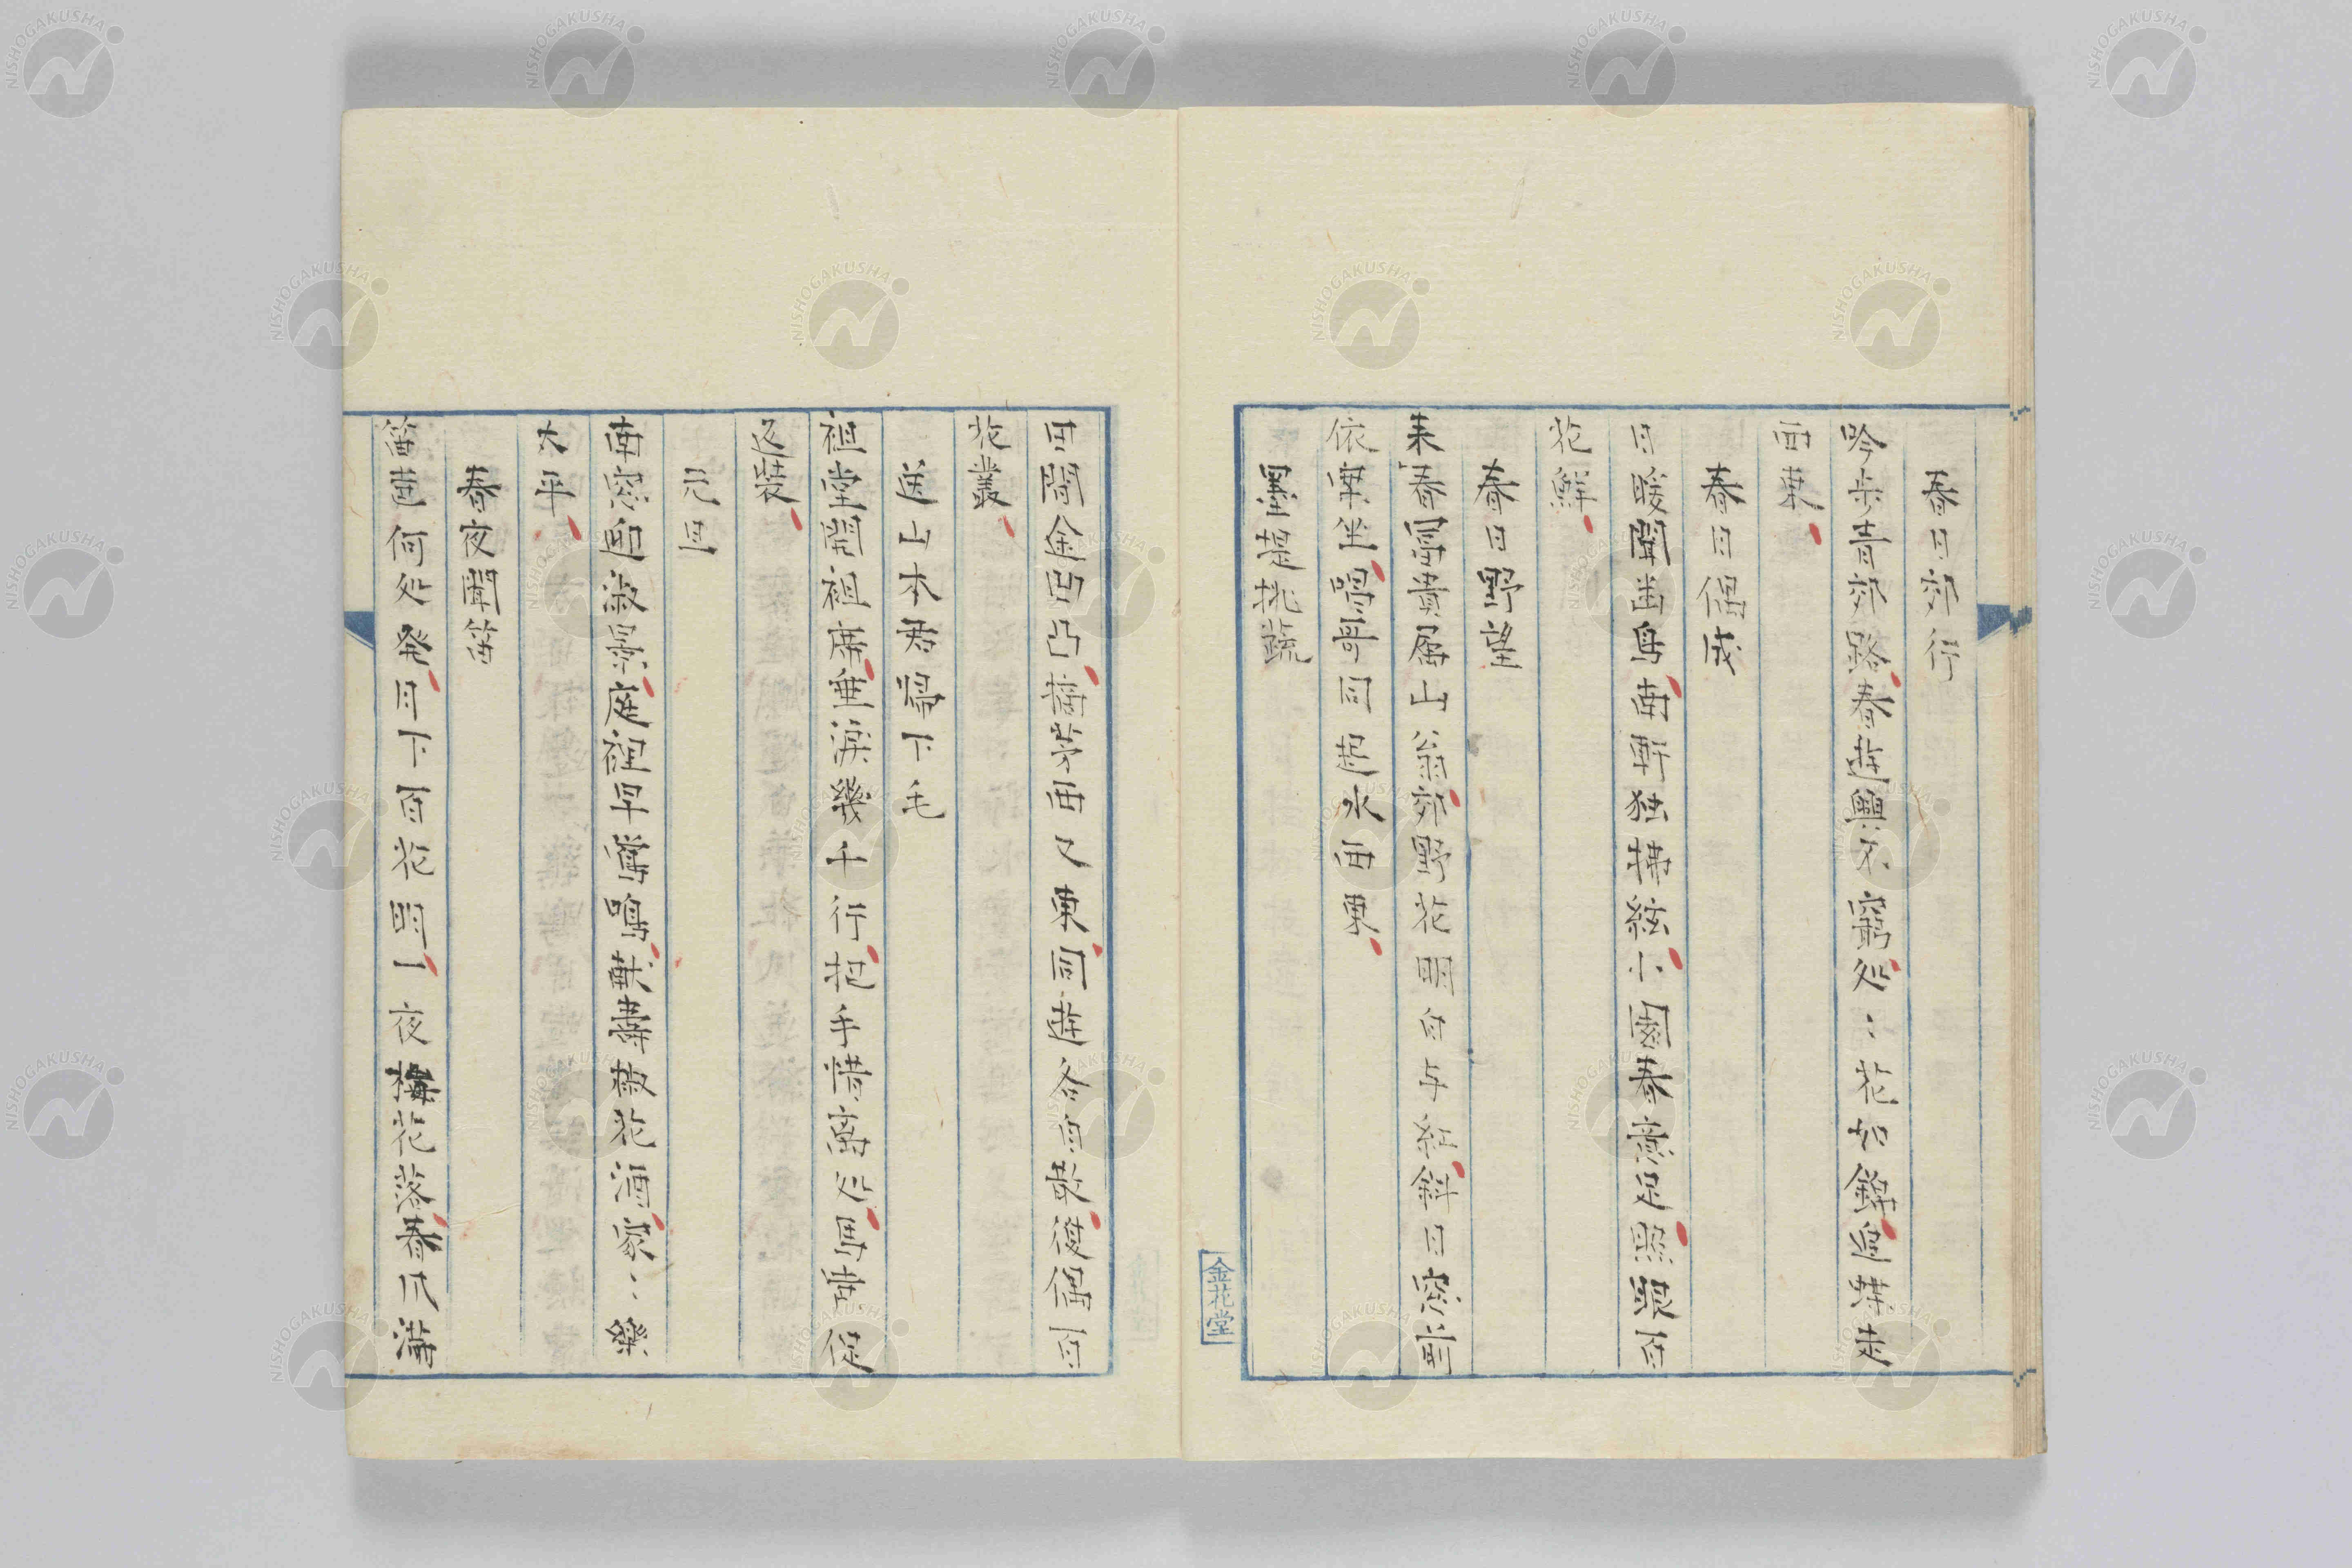 春日郊行
吟歩青郊路春遊興不窮処〻花如錦兎葵走
西東
春日偶成
日暖聞幽鳥南軒独撫絃小園春葵足照眼百
花鮮
春日野望
来春冨貴属山翁郊野花明白与紅斜日窓前
依案坐鳴哥同起水西東
聖堤桃蔬
日開金凹凸梅夢西又東同遊今旬散凌偶百
花叢
送山本君帰下毛
祖堂開祖席垂涙幾千行把手惜离処馬幸促
返装
元旦
南窓迎淑景庭祖早鶯鳴献寿椒花酒家〻樂
太平
春夜聞笛
笛声何処発月下百花明一夜梅花落春風満
金花堂
NISHOGAKUSHA